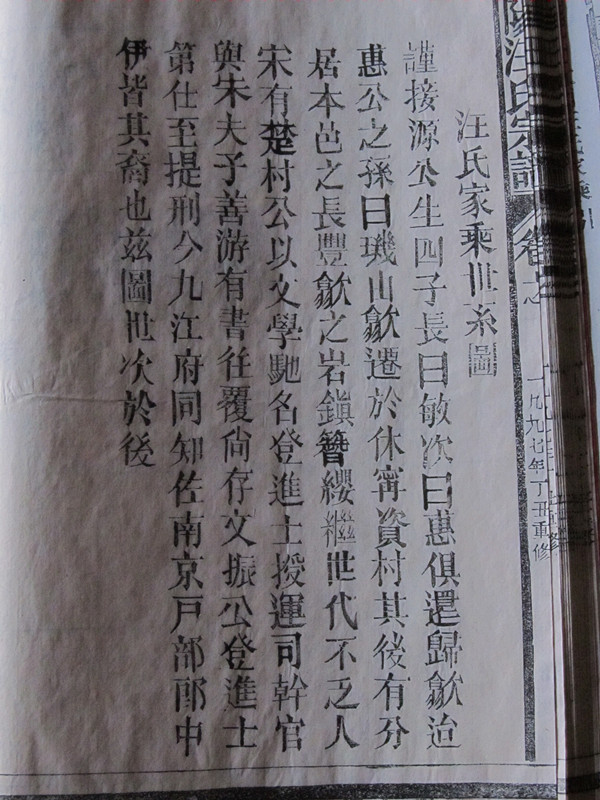 汪氏宗譜
卷之
一九九七年丁丑重修
汪氏家乘世系圖
謹按源公生四子長曰敏次曰惠俱還歸歙迨
惠公之孫曰璣山歙遷於休寗資村其後有分
居本邑之長豐歙之岩鎮簪纓繼世代不乏人
宋有楚村公以文學馳名登進士授運司幹官
與朱夫子善游有書往覆尙存文振公登進士
第仕至提刑今九江府同知佐南京戶部郎中
伊皆其裔也兹圖世次於後